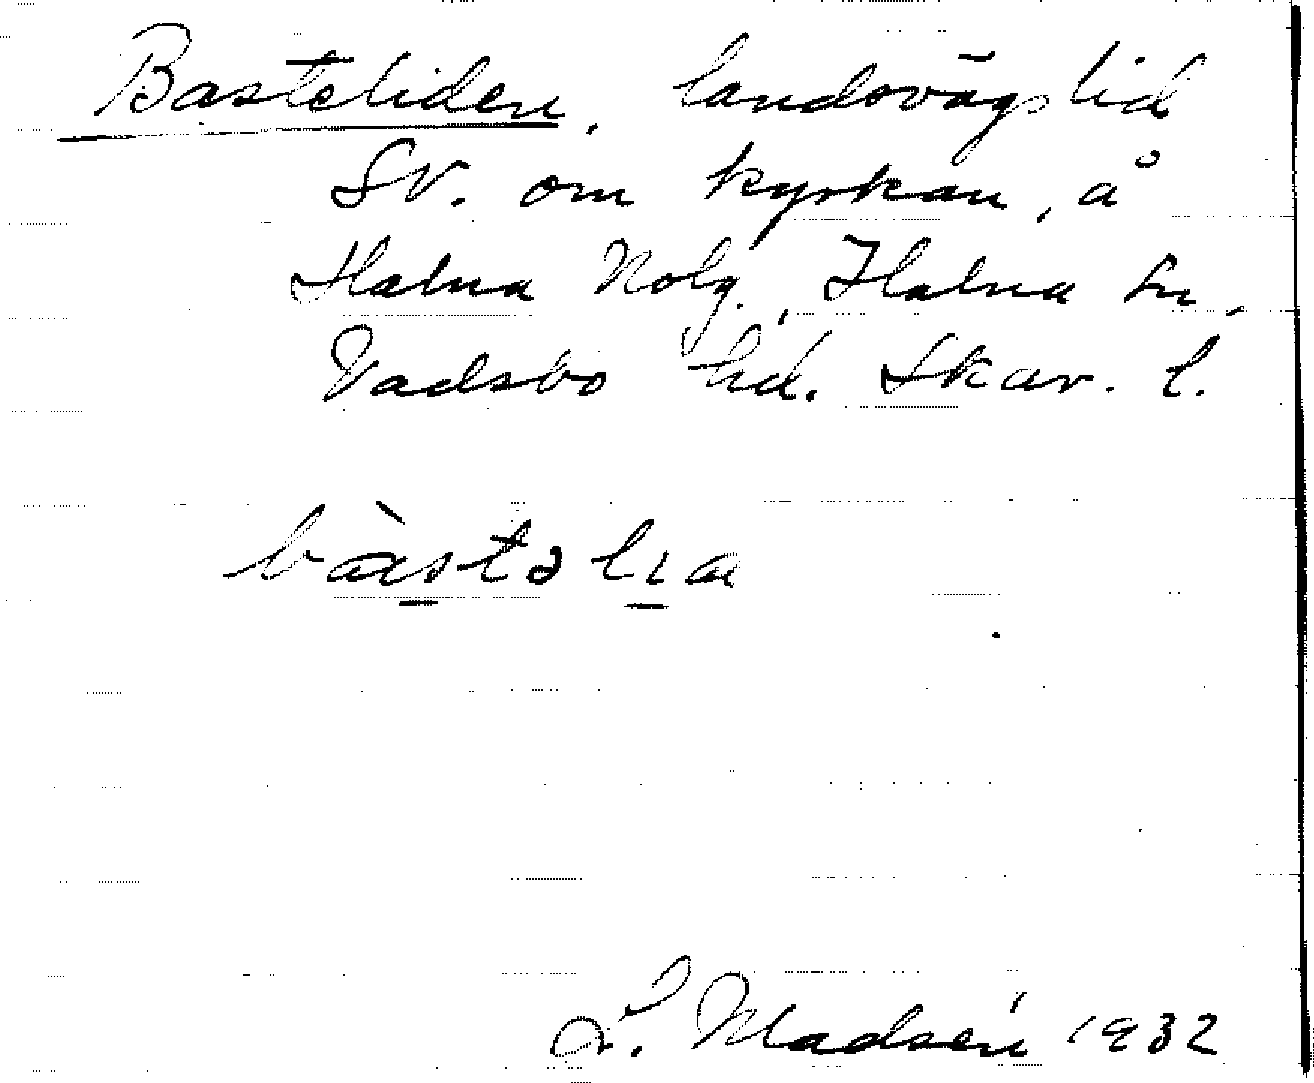 Basteliden, landsvägslid
SV. om kyrkan, å
Halna Nolg., Halna sn,
Vadsbo hd. Skar. l.
bàstəlıa
L. Madsén 1932